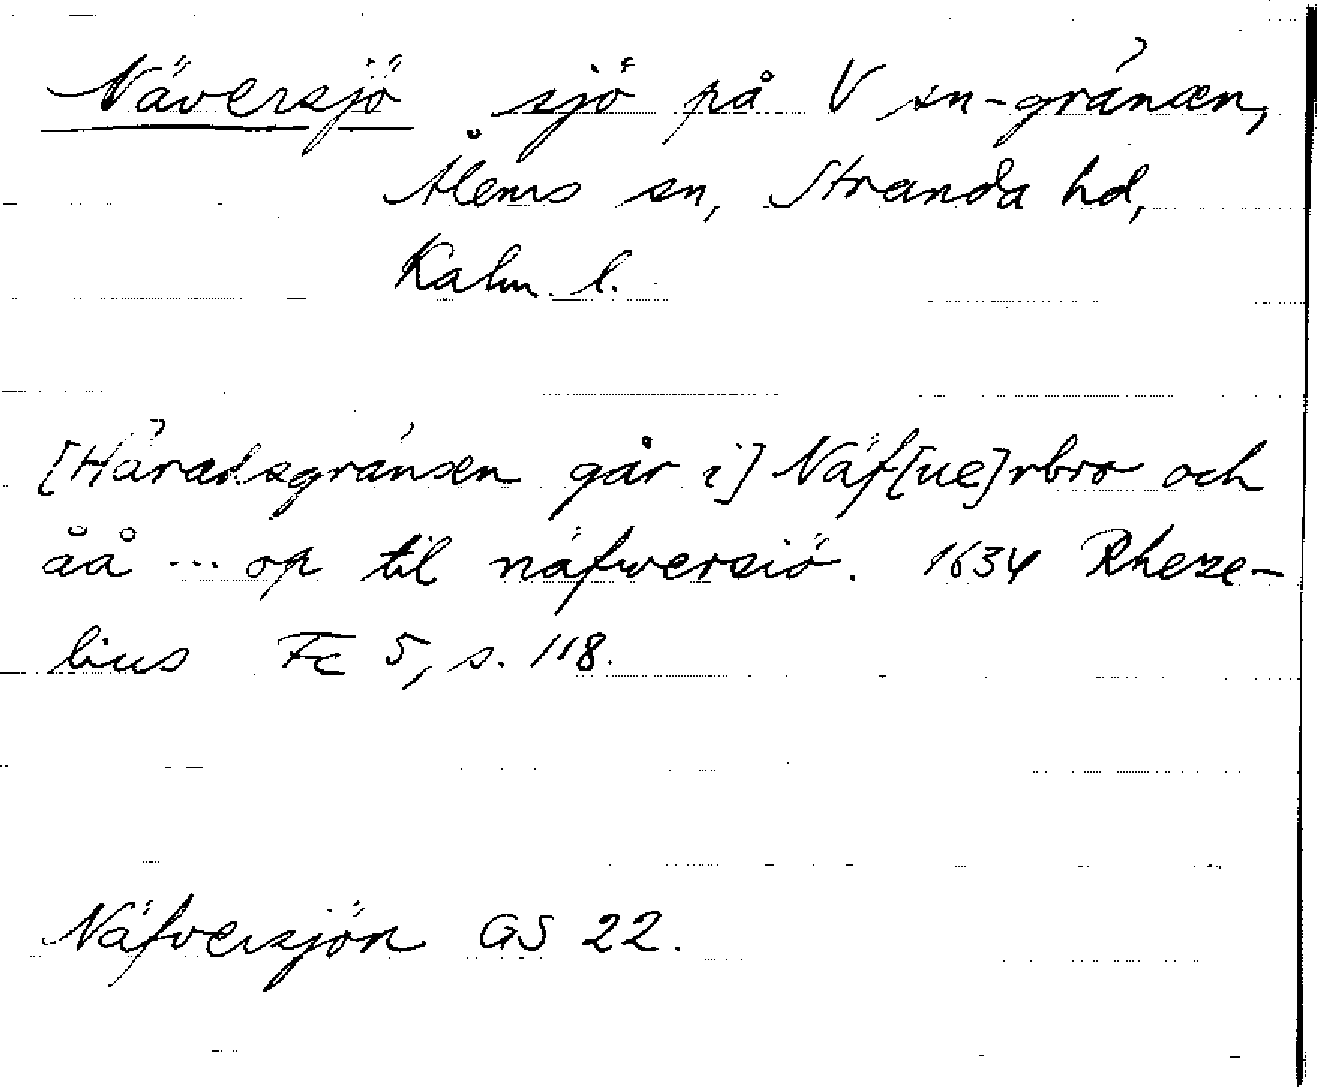 Näversjö sjö på V sn-gränsen,
Ålems sn, Stranda hd,
Kalm. l.
[Häradsgränsen går i] Näf[ue]rbro och
åå ... op til näfwersiö. 1634 Rheze-
lius Fc 5, s. 118.
Näfversjön GS 22.